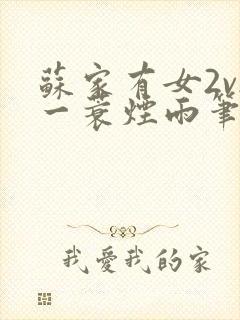 蘇家有女2v
一蓑煙雨筆
我愛我的家